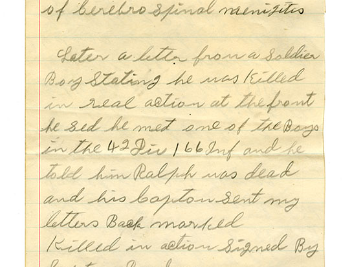 of Cerebro Spinal menigitis
Later a letter from a Soldier
Boy Stating he was Killed
in real action at the front
he sed he met one of the Boys
in the 42 Div 166 Inf and he
told him Ralph was dead
and his Capton Sent my
letters Back marked
Killed in action Signed By